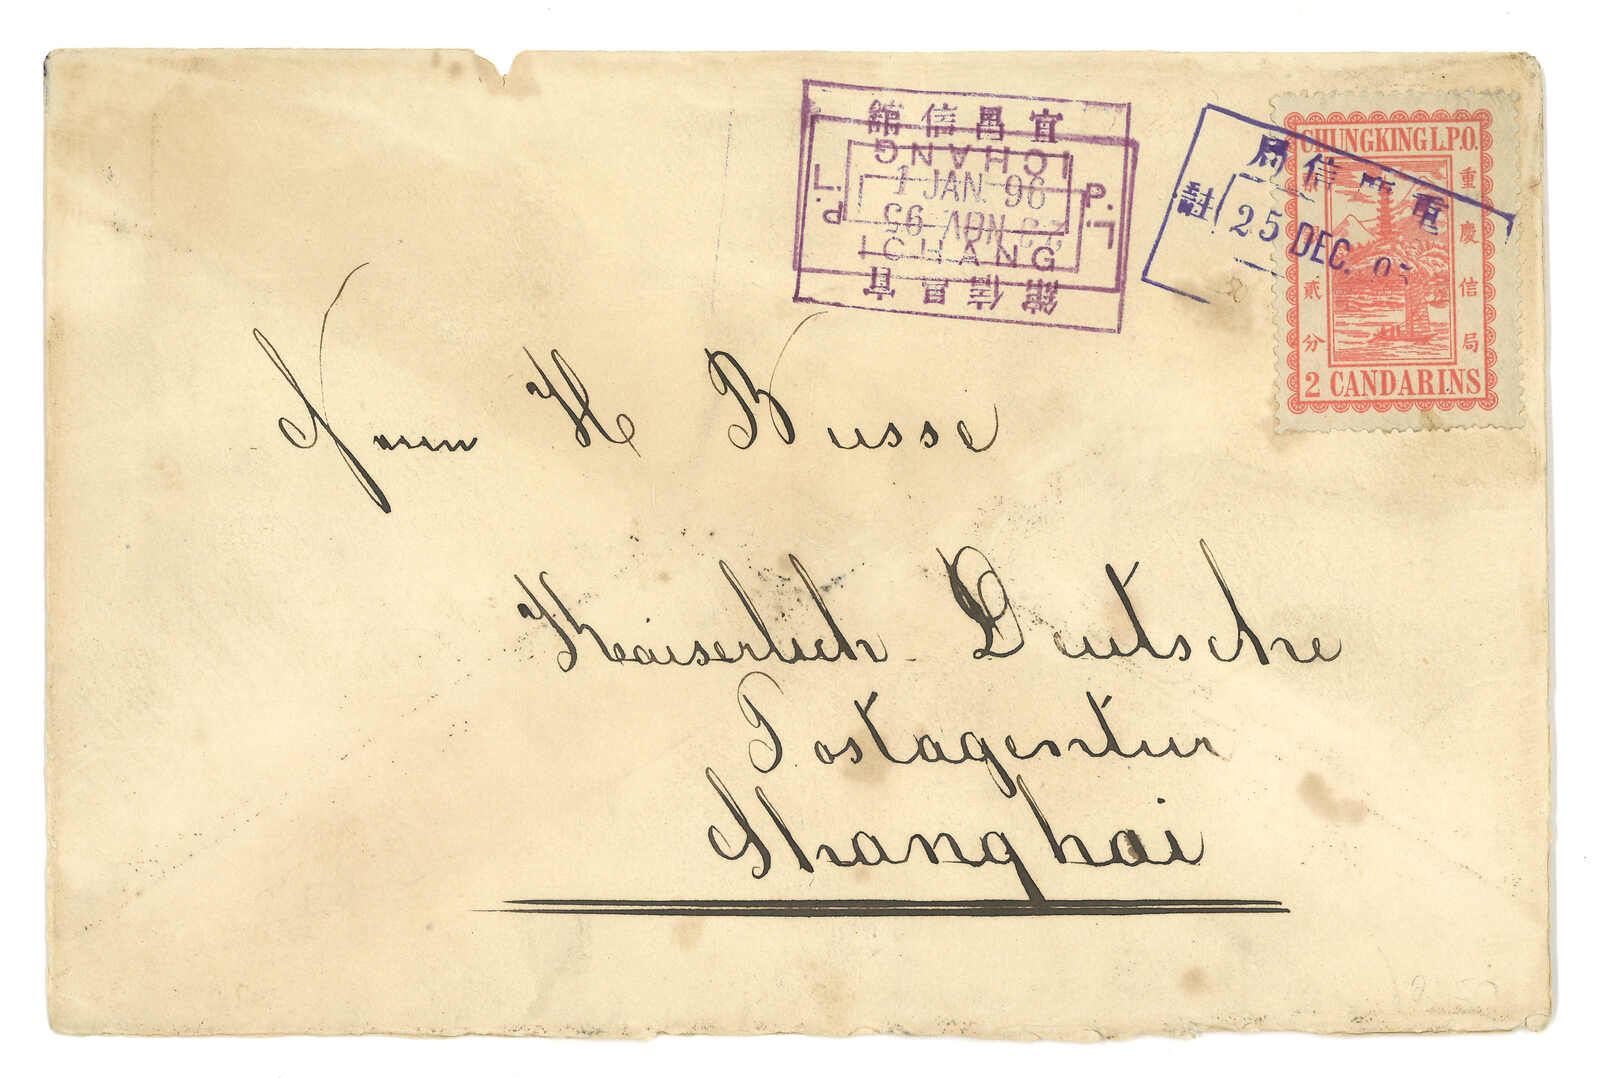 宜昌信館
ICHANG
L. P.
1 JAN. 96
NOV 95
L. P.
ICHANG
宜昌信館
重慶信局
訖
25 DEC. 95
CHUNGKING L.P.O.
重慶信局
貳分
2 CANDARINS
Herrn H Busse
Kaiserlich Deutsche
Postagentur
Shanghai